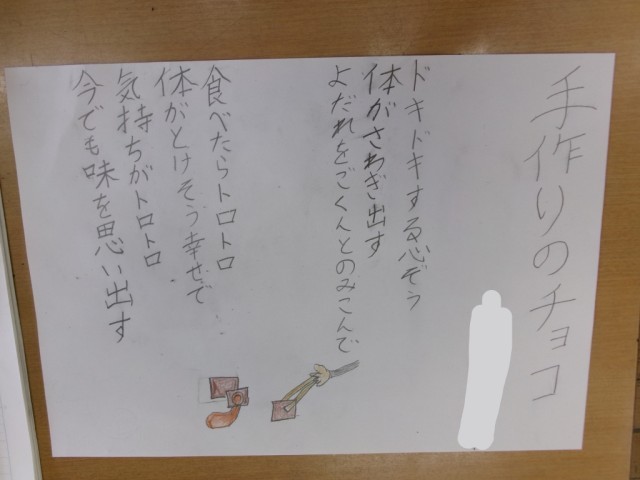 手作りのチョコ
ドキドキする心ぞう
体がさわぎ出す
よだれをごくんとのみこんで
食べたらトロトロ
体がとけそう幸せで
気持ちがトロトロ
今でも味を思い出す